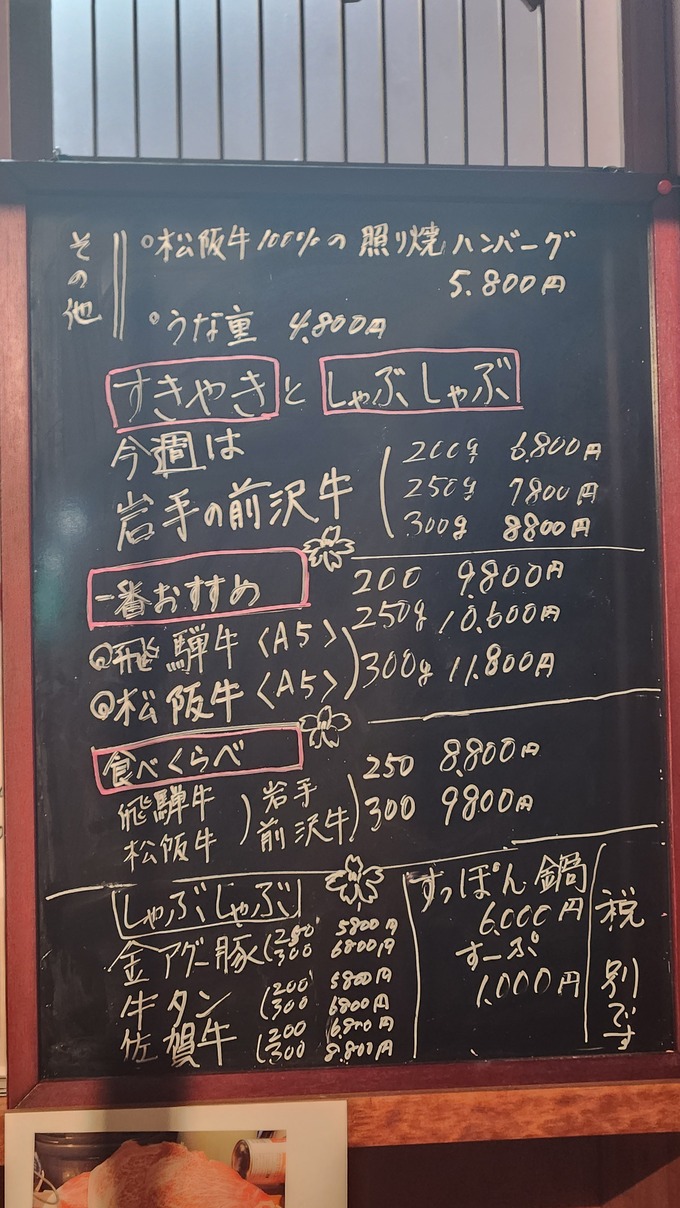 その他
○松阪牛100%の 照り焼ハンバーグ
5.800円
○うな重 4.800円
すきやき と しゃぶしゃぶ
今週は
岩手の前沢牛
200g 6.800円
250g 7800円
300g 8800円
一番おすすめ
飛騨牛〈A5〉
松阪牛〈A5〉
200 9.800円
250g 10.600円
300g 11.800円
食べくらべ
飛騨牛
松阪牛
岩手
前沢牛
250 8.800円
300 9800円
しゃぶしゃぶ
金アグー豚
300 6800円
牛タン
(200 5800円
(300 6800円
佐賀牛
(200 6.800円
(300 8.800円
すっぽん鍋
6.000円
すーぷ
1.000円
税別です